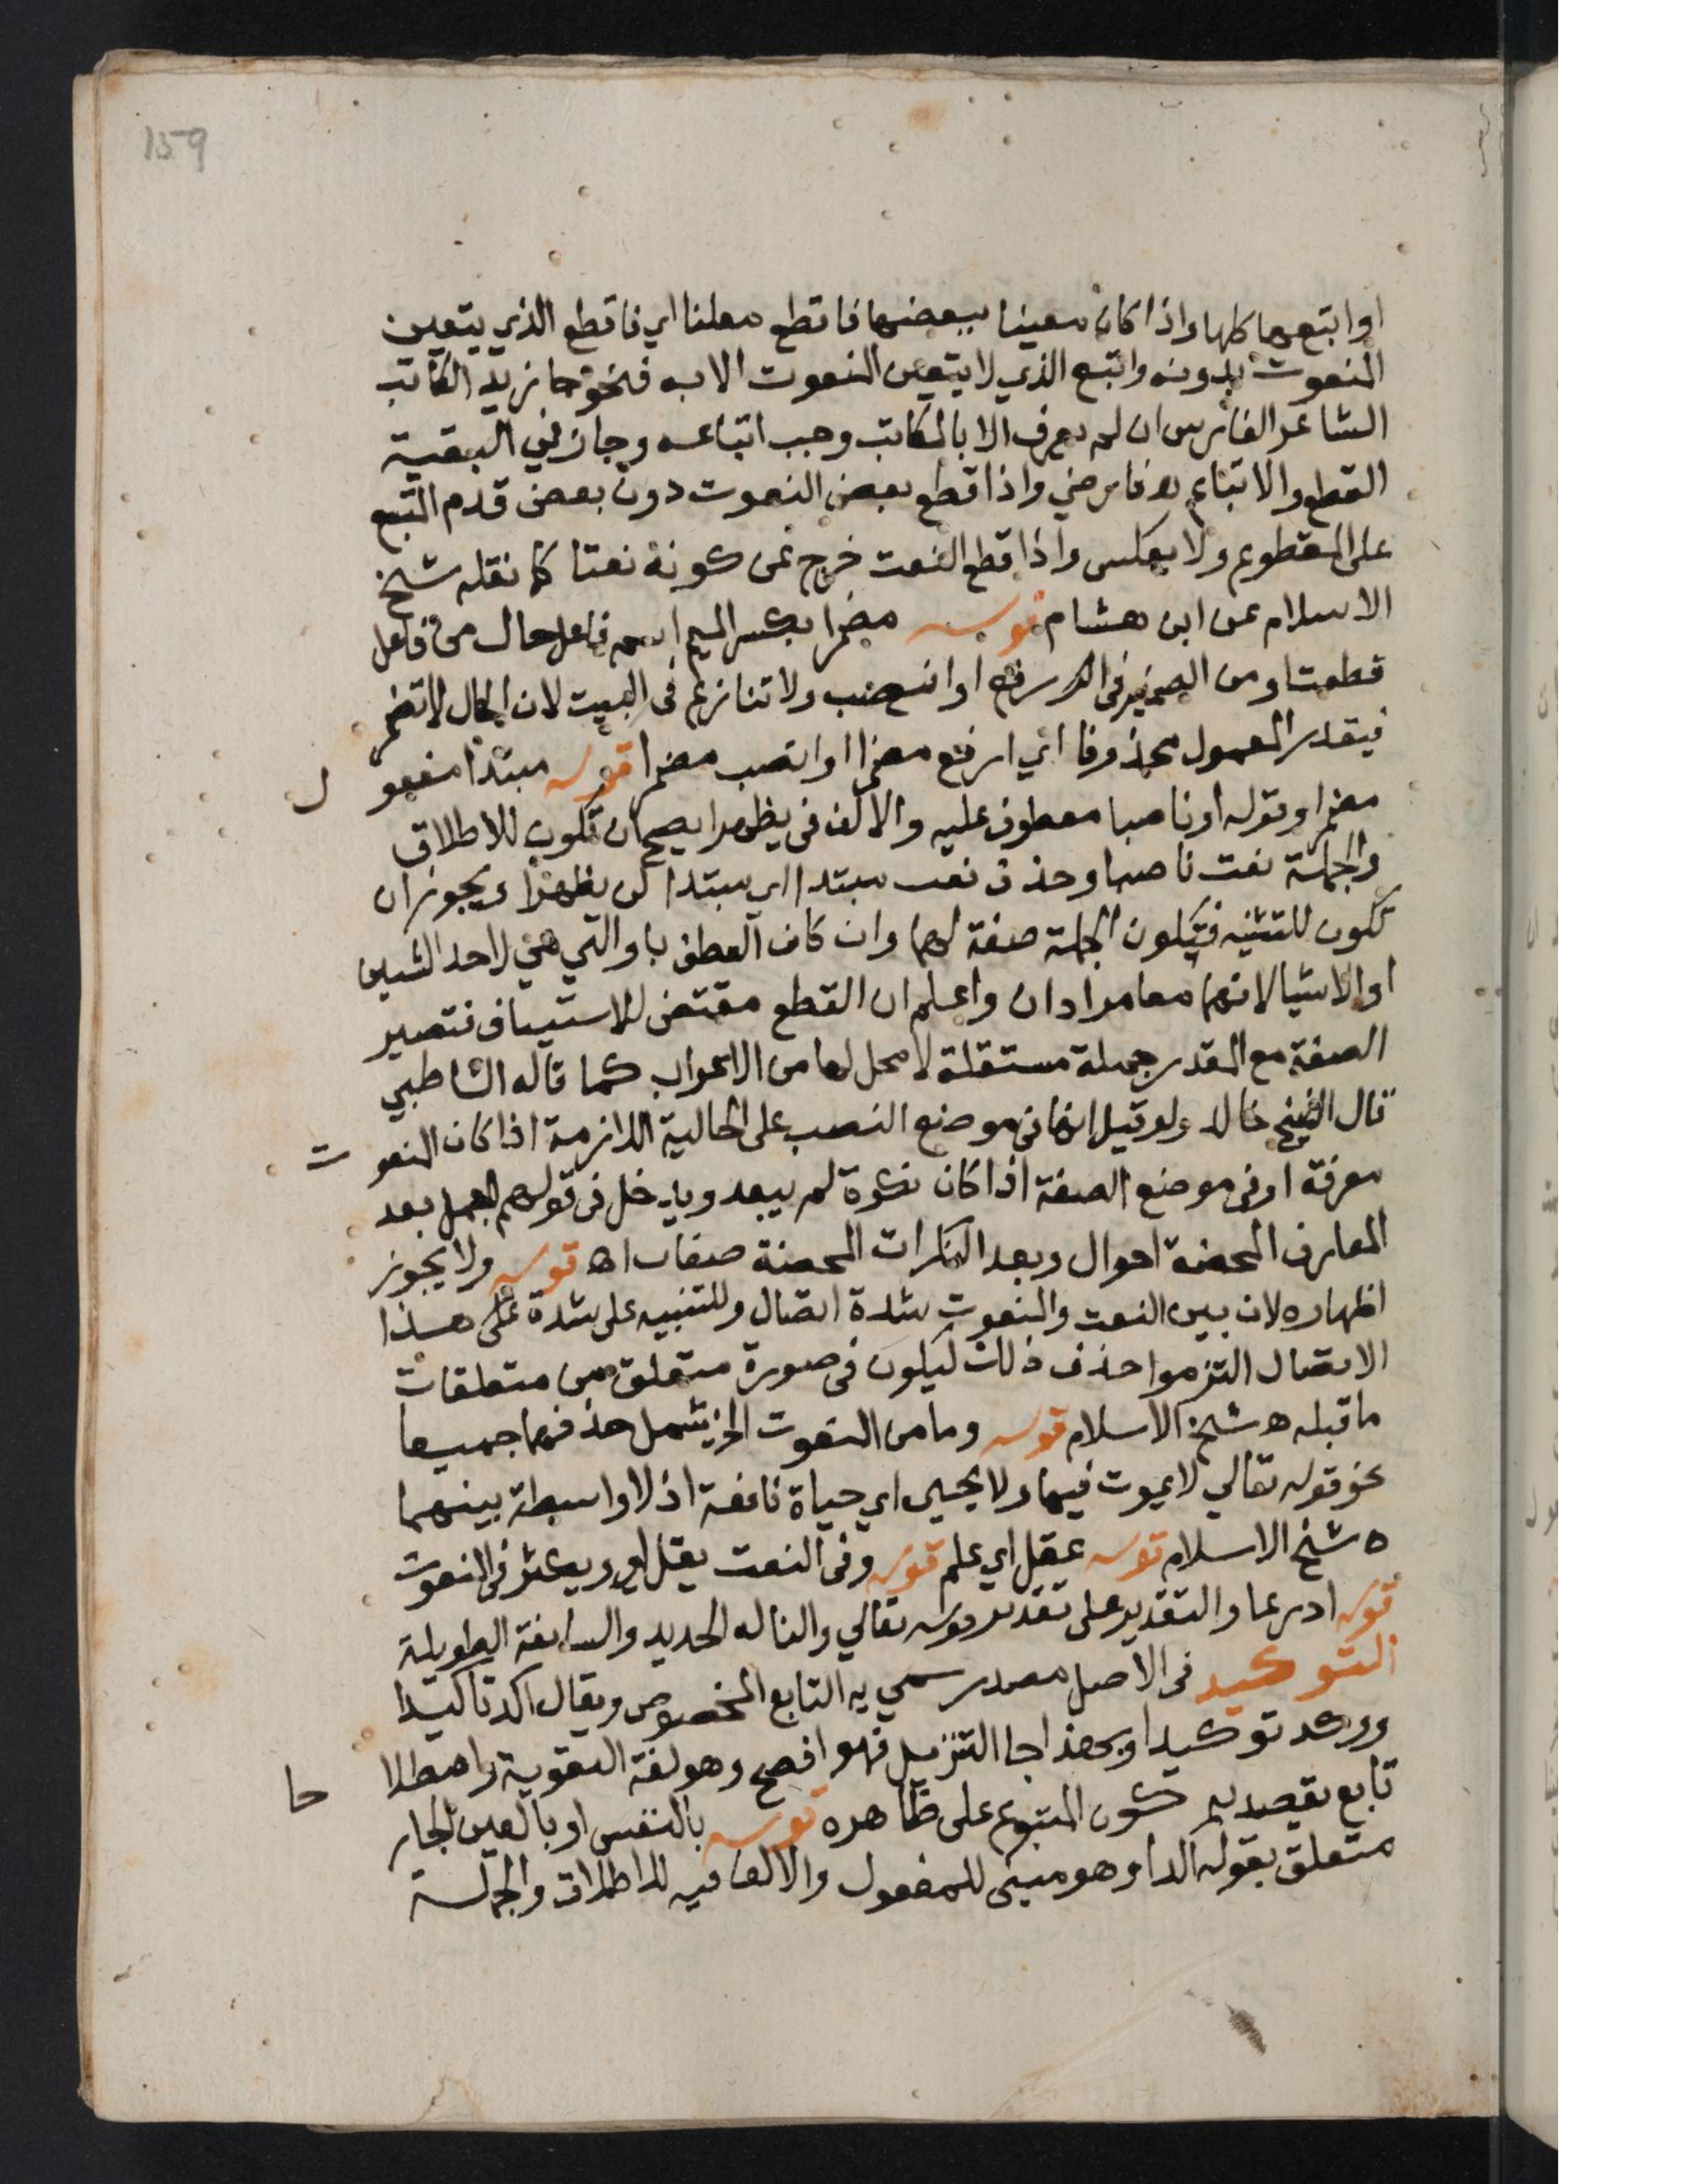 159
او اتبعها كلها واذا كان معينا ببعضها فاقطع معلنا اي فاقطع الذي يتعين
المنعوت بدونه واتبع الذي لا يتعين المنعوت الا به فنحو جا زيد الكاتب
الشاعر الفارس ان لم يعرف الا بالكاتب وجب اتباعه وجاز في البقية
القطع والاتباع فارضي واذا قطع بعض النعوت دون بعض قدم المتبع
على المقطوع ولا يعكس واذا قطع النعت خرج عن كونه نعتا كما نقله شيخ
الاسلام عن ابن هشام قوله مضمرا بكسر الميم اسم فاعل حال من فاعل
قطعت او من الضمير في ارفع او انصب ولا تنازع في البيت لان الحال لا تضمر
فيقدر المعمول محذوفا اي ارفع مضمرا او انصب مضمرا قوله مبتدا مفعو ل
مضمرا وقوله او ناصبا معطوف عليه والالف في يظهرا يصح ان تكون للاطلاق
والجملة نعت ناصبا وحذف نعت مبتدا اي مبتدا لن يظهرا ويجوز ان
تكون للتثنيه فتكون الجملة صفة لهما وان كان العطف باو التي هي لاحد الشيين
او الاشيا لانهما معا مرادان واعلم ان القطع مقتض للاستيناف فتصير
الصفة مع المقدر جملة مستقلة لا محل لها من الاعراب كما قاله الشاطبي
قال الشيخ خالد ولو قيل انها في موضع النصب على الحالية اللازمة اذا كان المنعو ت
معرفة او في موضع الصفة اذا كان نكرة لم يبعد ويدخل في قولهم الجمل بعد
المعارف المحضة احوال وبعد النكرات المحضة صفات اه قوله ولا يجوز
اظهاره لان بين النعت والمنعوت شدة اتصال وللتنبيه على شدة على هذا
الاتصال التزموا حذف ذلك ليكون في صورة متعلق من متعلقات
ما قبله ه شيخ الاسلام قوله وما من المنعوت الخ يشمل حذفهما جميعا
نحو قوله تعالي لا يموت فيها ولا يحيى اي حياة نافعة اذ لا واسطة بينهما
ه شيخ الاسلام قوله عقل اي علم قوله وفي النعت يقل اي ويكثر في المنعوت
قوله ادرعا والتقدير على تقدير قوله تعالي والنا له الحديد والسابغة الطويلة
التوكيد في الاصل مصدر سمي به التابع المخصوص ويقال اكد تاكيدا
ووكد توكيدا وبهذا جا التنزيل فهو افصح وهو لغة التقوية واصطلا حا
تابع يقصد به كون المتبوع على ظاهره قوله بالنفس او بالعين الجار
متعلق بقوله اكدا وهو مبني للمفعول والالف فيه للاطلاق والجملة